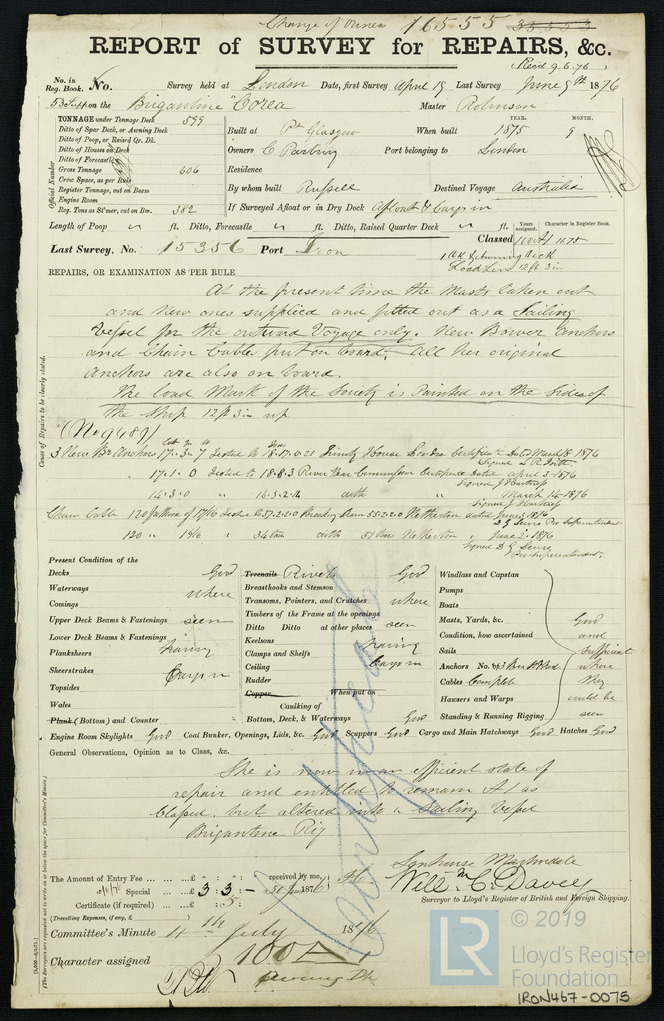 Change of Owners 16555 35553
REPORT of SURVEY for REPAIRS, &c.
(Recd 9.6.76)
No. in Reg. Book. No. Survey held at London Date, first Survey April 19 Last Survey June 9th 1876
on the Brigantine "Corea" Master Robinson
TONNAGE under Tonnage Deck 599
Ditto of Spar Deck, or Awning Deck
Ditto of Poop, or Raised Qr. Dk.
Ditto of Houses on Deck
Ditto of Forecastle
Gross Tonnage 606
Crew Space, as per Rule
Register Tonnage, cut on Beam
Engine Room
Reg. Tons as St'mer, cut on Bm. 382
Official Number
Built at Pt Glasgow When built YEAR. 1875 MONTH. 9
Owners C Port belonging to London
Residence
By whom built Russell Destined Voyage Australia
If Surveyed Afloat or in Dry Dock Afloat &
Length of Poop " ft. Ditto, Forecastle " ft. Ditto, Raised Quarter Deck " ft.
Years assigned. Character in Register Book.
Last Survey, No. 15356 Port Iron
Classed 100A1 1875
1 Dk Awning Deck
Load Line 12 ft 3 in
REPAIRS, OR EXAMINATION AS PER RULE
Cause of Repairs to be clearly stated.
At the present time the Masts taken out
and New ones supplied and fitted out as a Sailing
Vessel for the outward Voyage only. New Bower Anchors
and Chain Cables put on board. All her original
Anchors are also on board.
The Load Mark of the Society is Painted on the sides of
the Ship 12 ft 3 in up
(No 9489)
3 New Br Anchors 17.3.7 tested to 18.17.0.21 Trinity House London Certificate Dated March 18 1876
Signed
17.1.0 tested to 18.8.3 River Wear Commissioner Certificate Dated April 3 1876
Signed J Hartness
14.3.0 " 16.3.2.14 ditto " March 14 1876
Signed J Hartness
Chain Cable 120 fathoms of 1 7/16 tested to 37.2.0.0 Breaking Strain 55.2.2.0 Netherton dated June 2 1876
Superintendent
120 " 34 tons ditto 51 tons Netherton " June 2. 1876
Superintendent
Present Condition of the
Decks Good
Waterways where
Comings
Upper Deck Beams & Fastenings seen
Lower Deck Beams & Fastenings
Planksheers having
Sheerstrakes Cargo in
Topsides
Wales
Plank (Bottom) and Counter
Treenails Rivets Good
Breasthooks and Stemson
Transoms, Pointers, and Crutches where
Timbers of the Frame at the openings
Ditto Ditto at other places seen
Keelsons
Clamps and Shelfs having
Ceiling Cargo in
Rudder
Copper When put on
Caulking of
Bottom, Deck, & Waterways Good
Windlass and Capstan
Pumps
Boats
Masts, Yards, &c.
Condition, how ascertained
Sails
Anchors No. of
Cables Complete
Hawsers and Warps
Standing & Running Rigging
Good
and
sufficient
where
they
could be
seen
Engine Room Skylights Good Coal Bunker, Openings, Lids, &c. Good Scuppers Good Cargo and Main Hatchways Good Hatches Good
General Observations, Opinion as to Class, &c.
She is now in an efficient state of
repair and entitled to remain A1 as
Classed, but altered into a Sailing Vessel
Brigantine Rig
The Amount of Entry Fee ... £ : : received by me,
Special ... £ 3 : 3 : - 187
Certificate (if required) ... £ : 5 :
(Travelling Expenses, if any, £ )
Martindale
Willm C. Davey
Surveyor to Lloyd's Register of British and Foreign Shipping.
Committee's Minute 4th July 1876
Character assigned 100A1
Awning Dk
(The Surveyors are requested not to write on or below the space for Committee's Minute.)
© 2019
LR
Lloyd's Register
Foundation
IRON467-0075